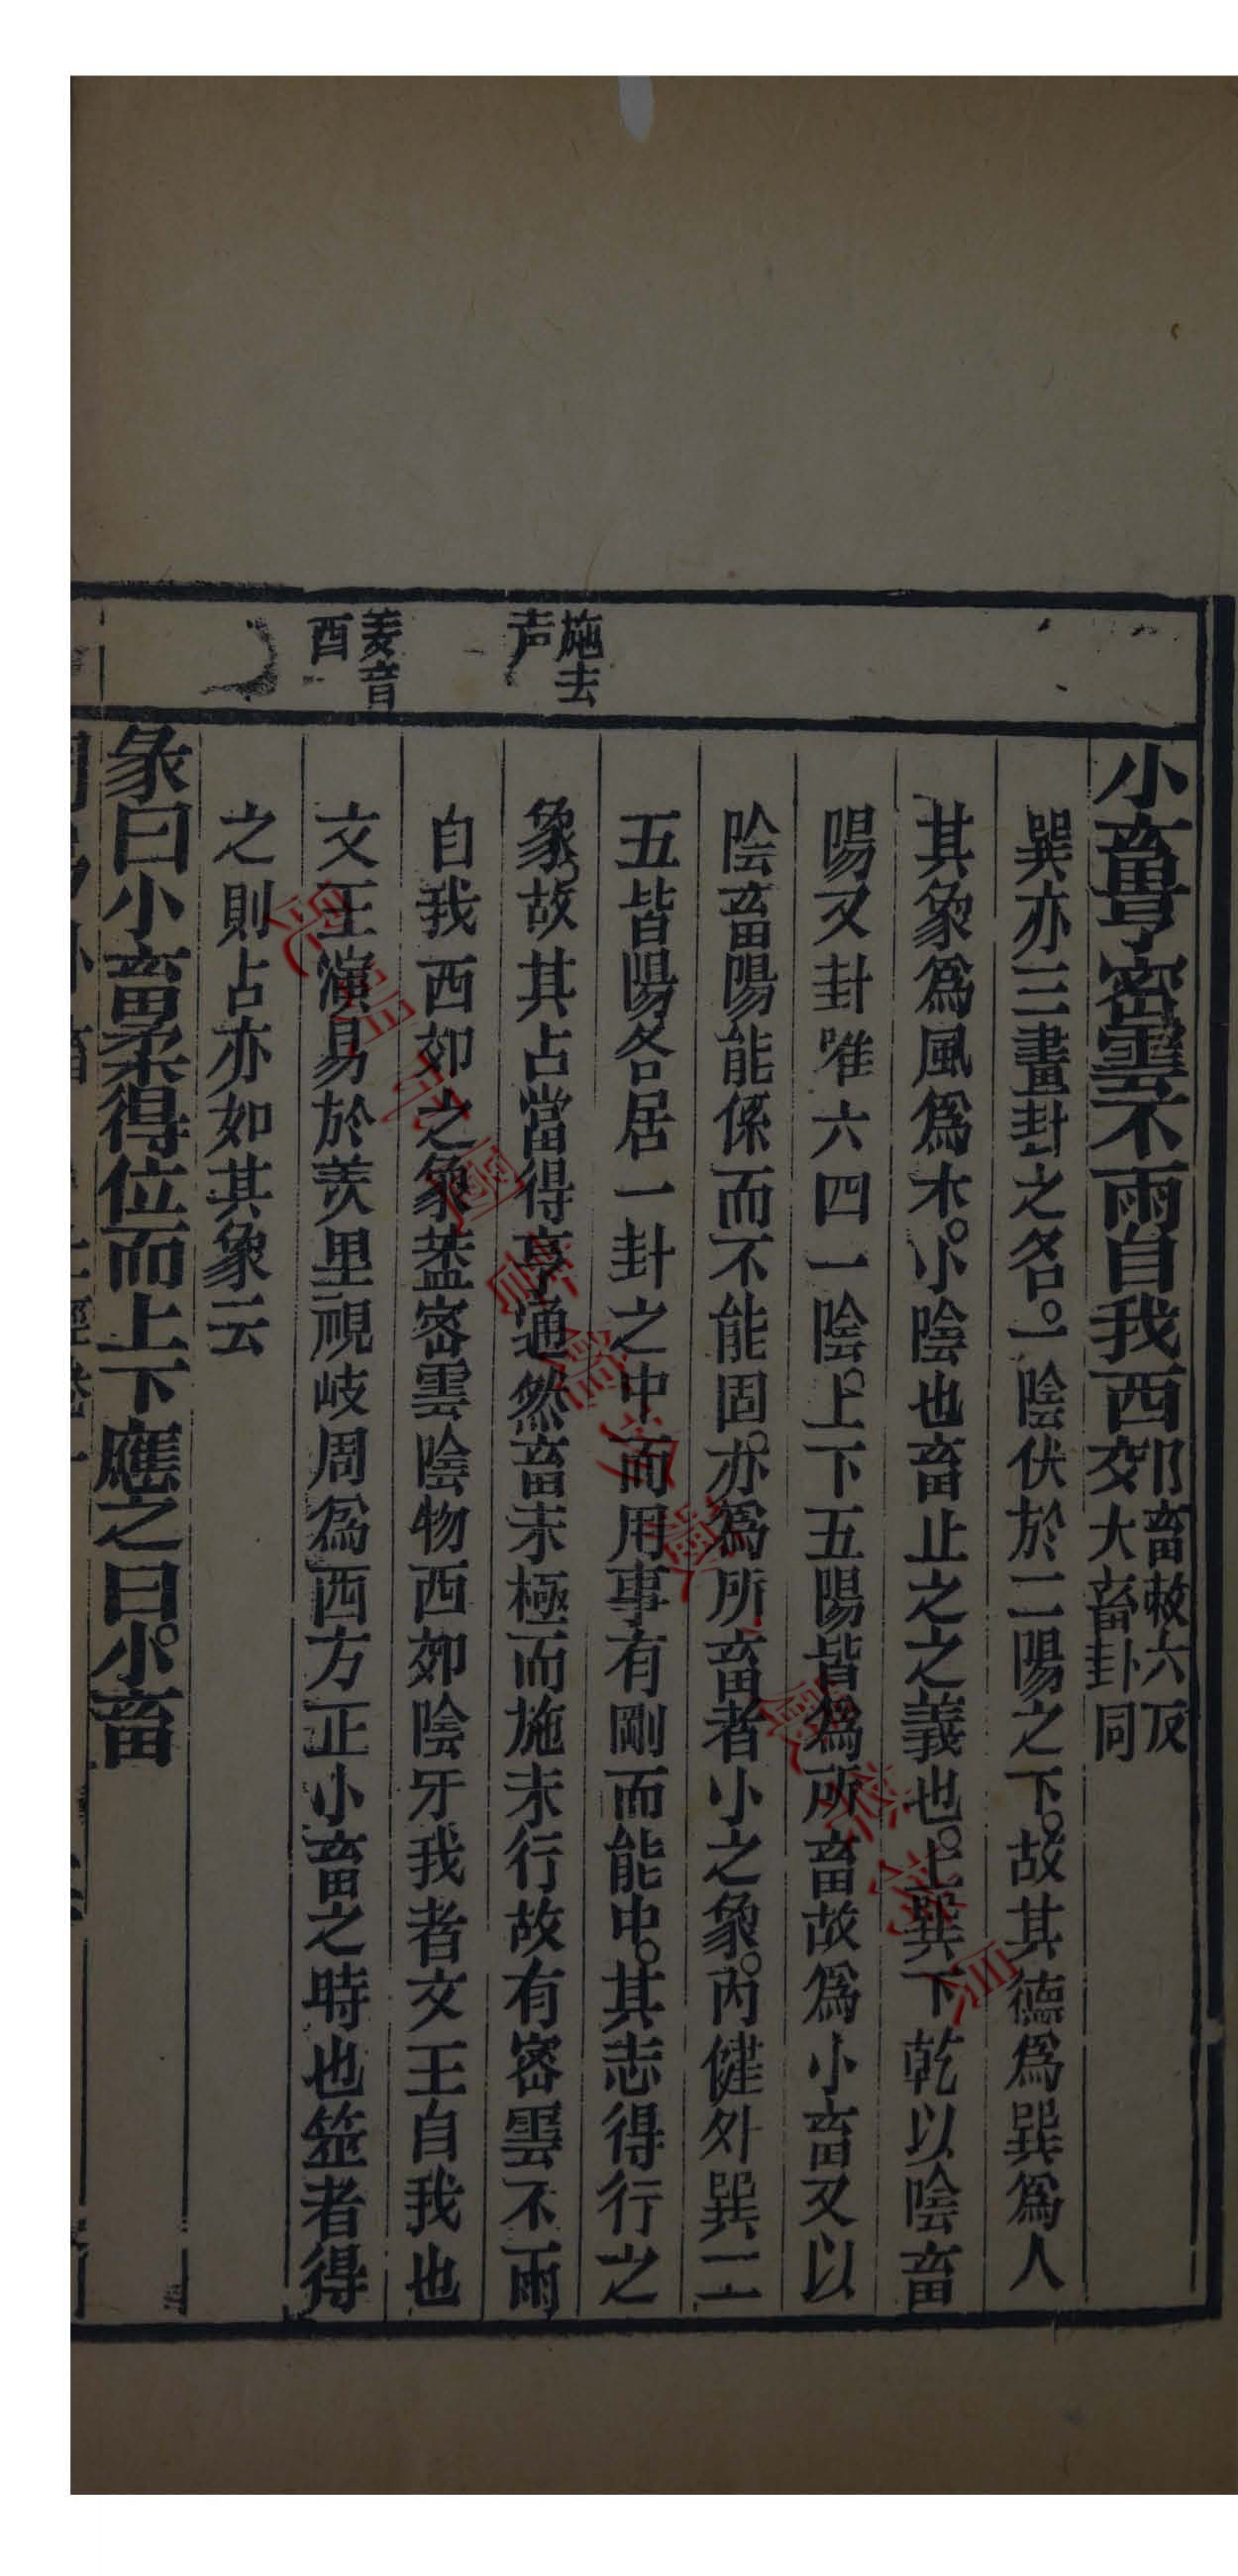 施去
声
羑音
酉
小畜亨密雲不雨自我西郊畜敕六反大畜卦同
巽亦三畫卦之名。一陰伏於二陽之下。故其德爲巽爲入
其象爲風爲木。小陰也畜止之之義也。上巽下乾以陰畜
陽又卦唯六四一陰。上下五陽皆爲所畜故爲小畜又以
陰畜陽能係而不能固。亦爲所畜者小之象。內健外巽二
五皆陽各居一卦之中而用事有剛而能中。其志得行之
象。故其占當得亨通然畜未極而施未行故有密雲不雨
自我西郊之象葢密雲陰物西郊陰方我者文王自我也
文王演易於羑里視岐周爲西方正小畜之時也筮者得
之則占亦如其象云
彖曰小畜柔得位而上下應之曰。小畜